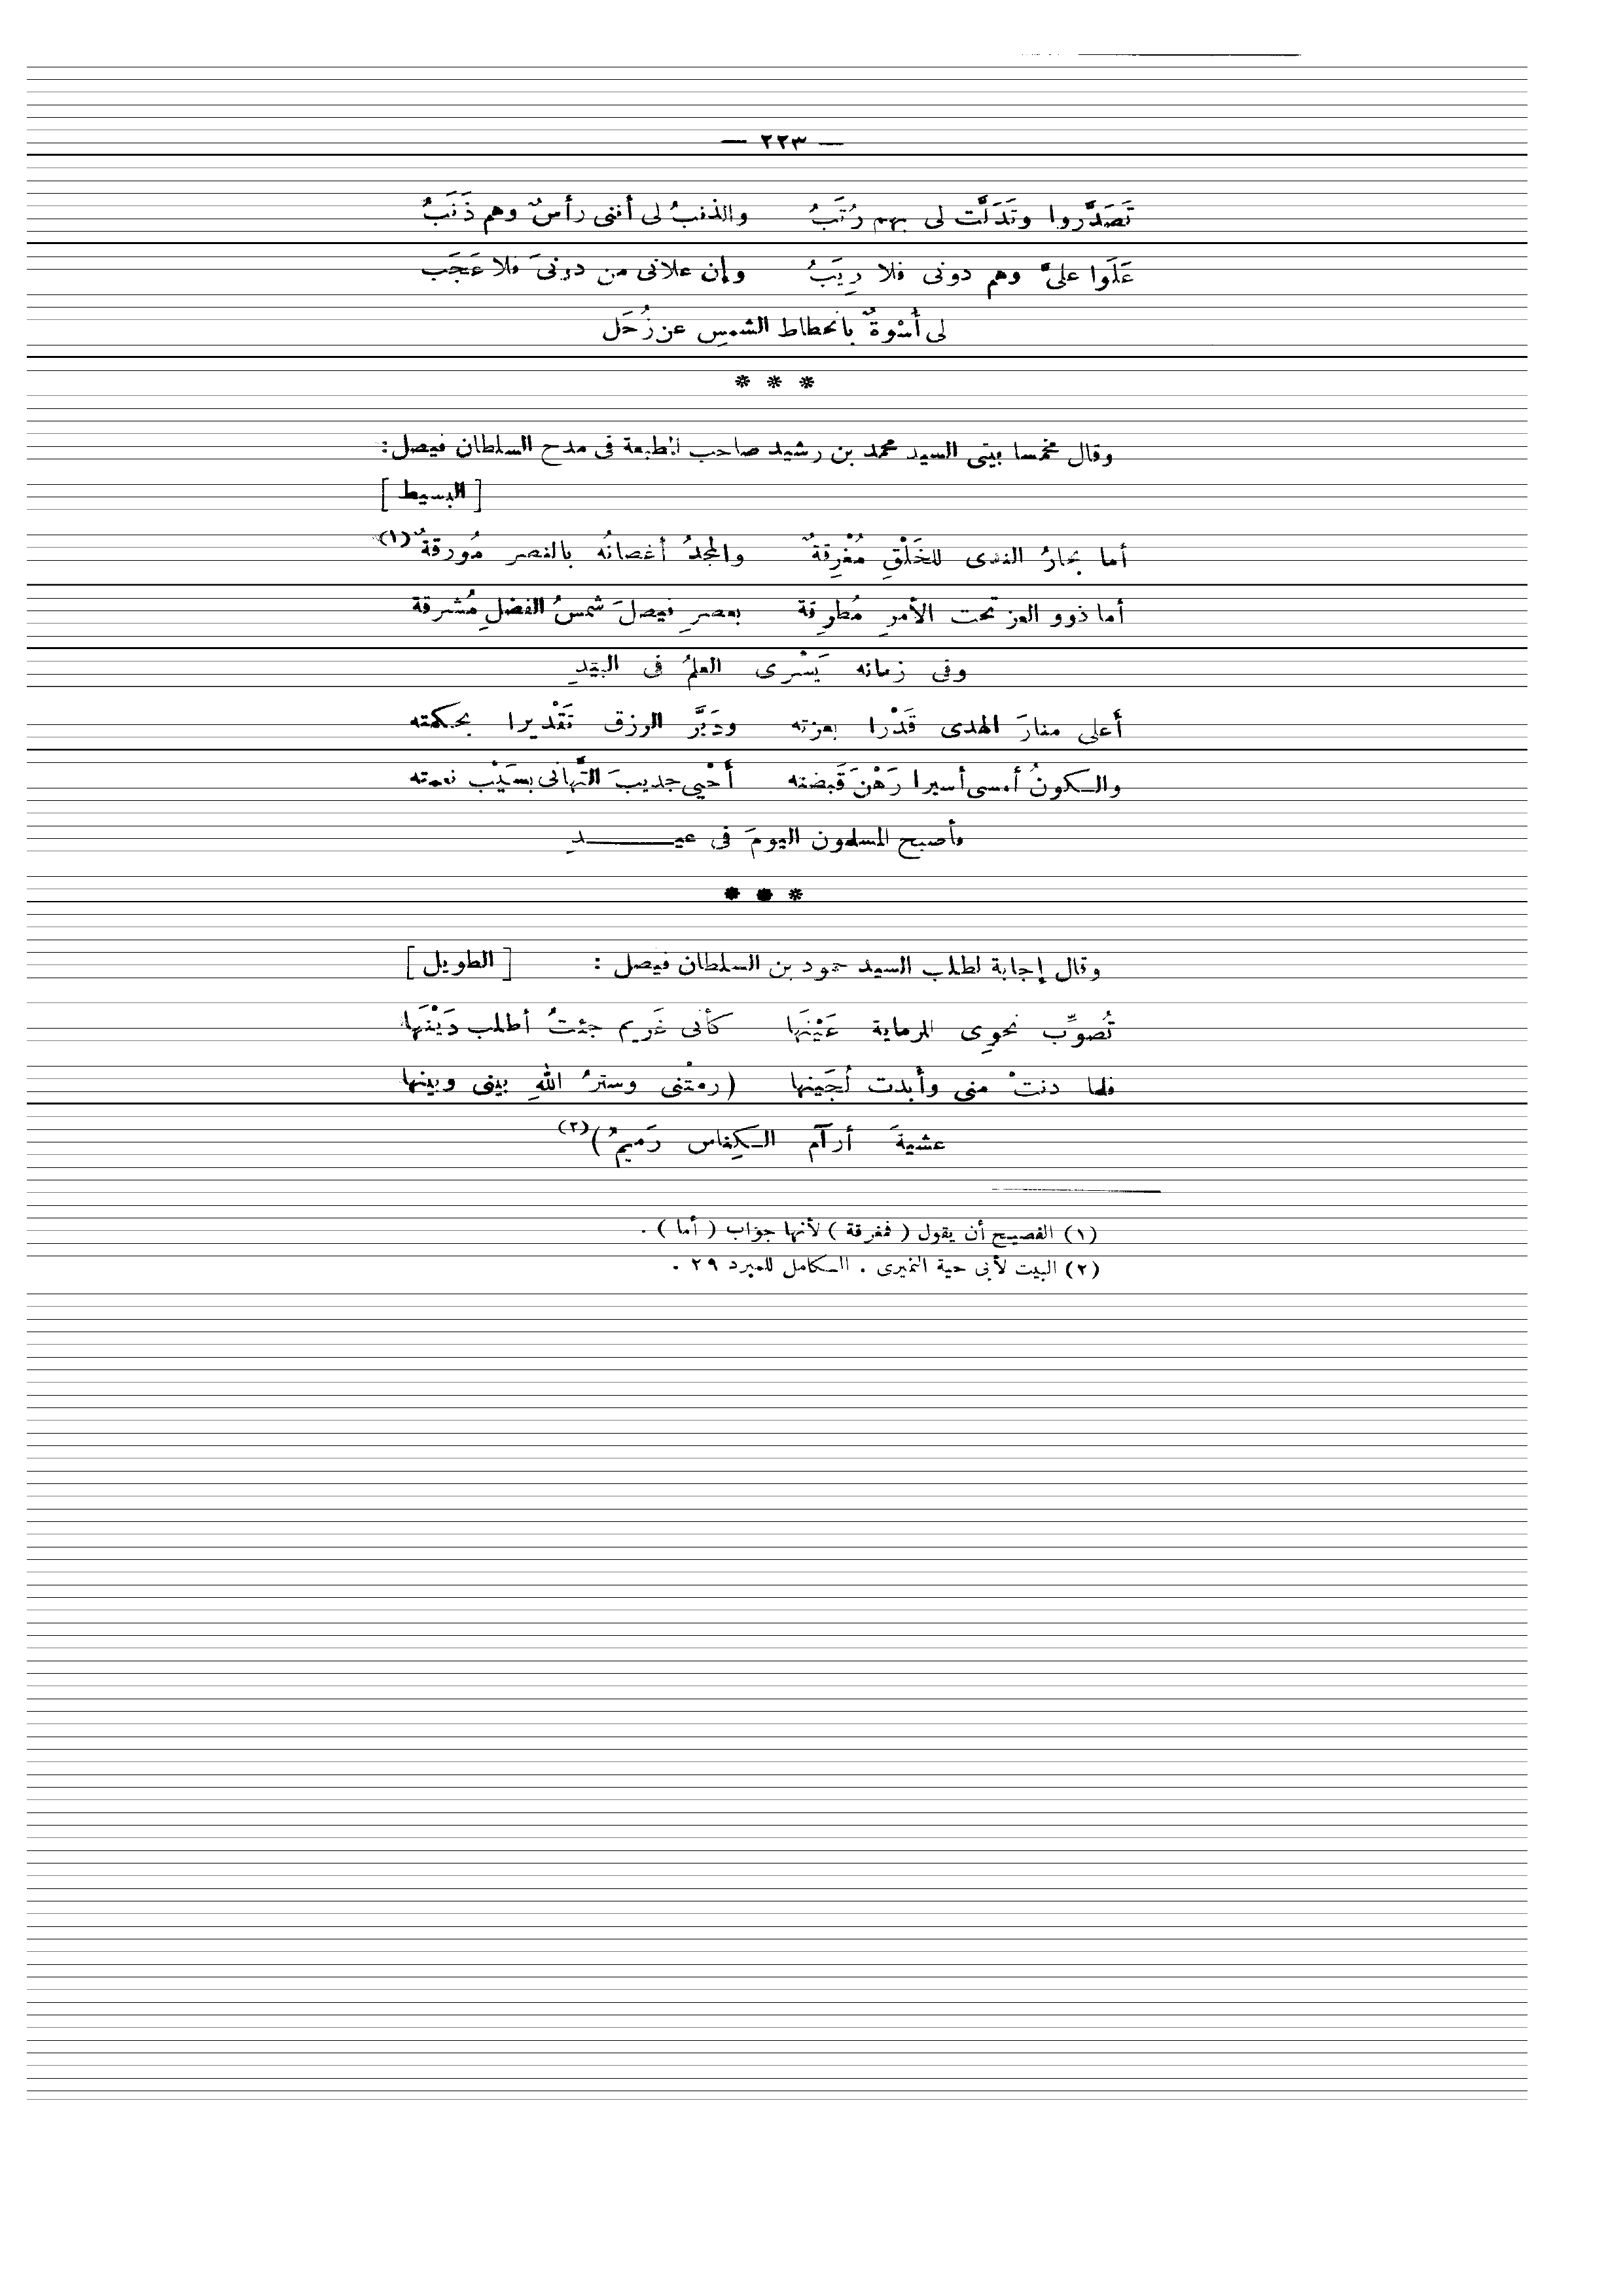 — ٢٢٣ —
تَصَدَّروا وتَدَلَّت لى بهم رُتَبُ والذنبُ لى أننى رأسٌ وهم ذَنَبُ
عَلَوا علىَّ وهم دونى فلا رِيَبُ وإن علانى من دونىَ فلا عَجَب
لى أُسْوةٌ بانحطاط الشمسِ عن زُحَل
* * *
وقال مخمسا بيتى السيد محمد بن رشيد صاحب المطبعة فى مدح السلطان فيصل:
[ البسيط ]
أما بحارُ الندى للخَلْقِ مُغْرِقةٌ والمجدُ أغصانُه بالنصر مُورقةٌ (١)
أما ذوو العز تحت الأمرِ مُطرِقة بعصرِ فيصلَ شمسُ الفضلِ مُشرقة
وفى زمانه يَسْرى العلمُ فى البيَدِ
أعلى منارَ الهدى قَدْرا بعزته ودَبَّر الرزق تَقْديرا بحكمته
والكونُ أمسى أسيرا رَهْنَ قَبضته أحْيى جديبَ التَّهانى بسَيْب نعمته
فأصبح المسلمون اليومَ فى عيـــــدِ
* * *
وقال إجابة لطلب السيد حمود بن السلطان فيصل : [ الطويل ]
تُصوِّب نحوِى الرماية عَيْنَهَا كأنى غَريم جئتُ أطلب دَيْنَهَا
فلما دنتْ منى وأبدت لُجَينها ( رمتْنى وسترُ اللهِ بينى وبينها
عشيةَ أرآم الكِناس رَميمُ ) (٢)
(١) الفصيح أن يقول ( فمغرقة ) لأنها جواب ( أما ) .
(٢) البيت لأبى حية النميرى . الكامل للمبرد ٢٩ .